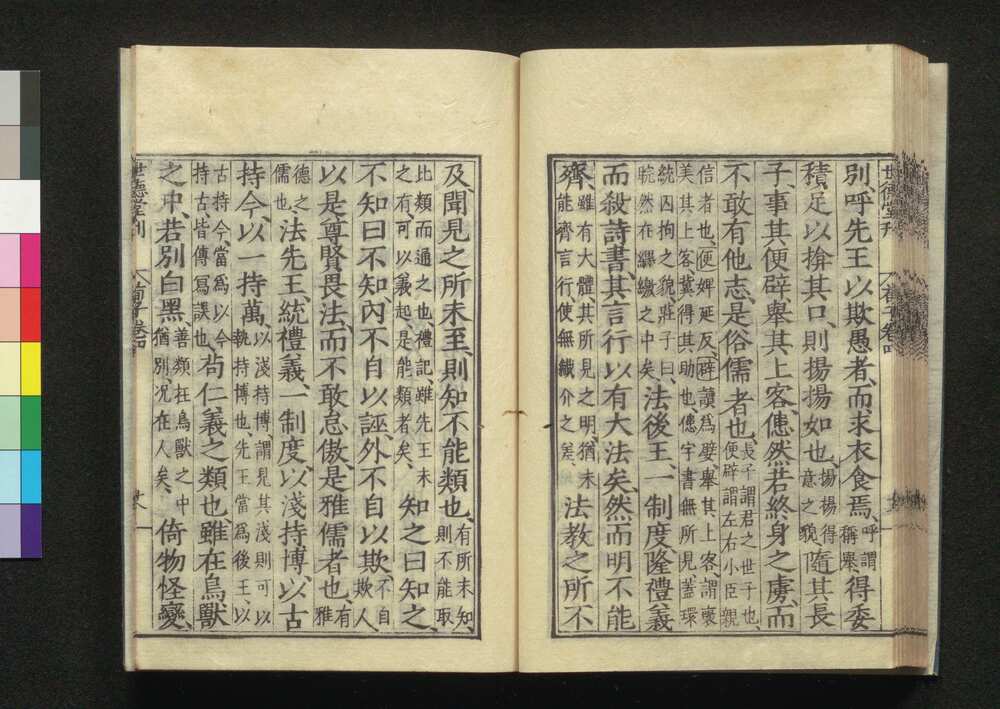 別呼先王以欺愚者、而求衣食焉、呼謂稱擧、得委
積足以揜其口、則揚揚如也、揚揚得意之貌隨其長
子、事其便辟、擧其上客、僡然若終身之虜、而
不敢有他志、是俗儒者也、長子謂君之世子也、便辟謂左右小臣親
信者也、便婢延反、辟讀爲嬖、擧其上客、謂褒美其上客、冀得其助也、僡字書無所見、蓋環
繞囚拘之貌、莊子曰、睆然在纆繳之中矣、法後王、一制度、隆禮義
而殺詩書、其言行以有大法矣、然而明不能
齊、雖有大體、其所見之明、猶未能齊言行使無纖介之差法教之所不
及聞見之所未至、則知不能類也、有所未知、則不能取
比類而通之也、禮記、雖先王未之有、可以義起、是能類者矣、知之曰知之、
不知曰不知、內不自以誣、外不自以欺、不自欺人、
以是尊賢畏法、而不敢怠傲、是雅儒者也、有雅
德之儒也法先王、統禮義、一制度、以淺持博、以古
持今、以一持萬、以淺持博、謂見其淺則可以執持博也、先王當爲後王、以
古持今、當爲以今持古皆傳寫誤也、苟仁義之類也、雖在鳥獸
之中、若別白黑、善類在鳥獸之中猶別、况在人矣、倚物怪變、
世德堂刊
荀子卷四